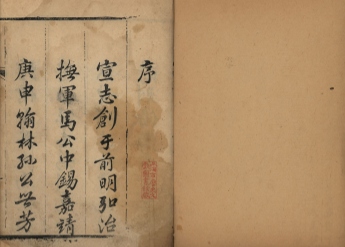 序
宣志創于前明弘治
撫軍馬公中錫嘉靖
庚申翰林孫公世芳